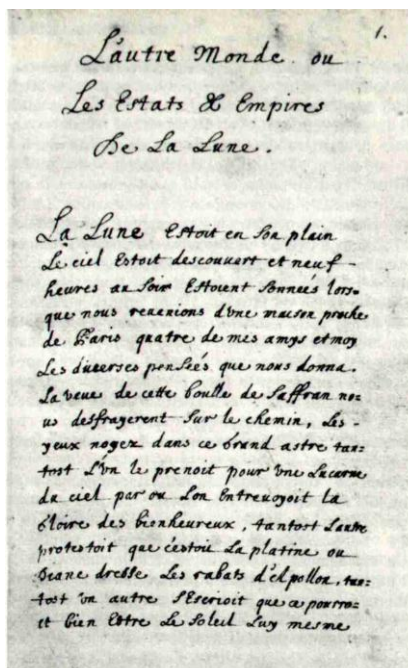 1.
L'autre Monde ou
Les Estats & Empires
De La Lune.
La Lune Estoit en Son plain
Le ciel Estoit descouvert et neuf
heures au Soir Estoient Sonneés lors-
que nous revenions d'vne maison proche
de Paris quatre de mes amys et moy
Les diverses penseés que nous donna
La veue de cette boulle de Saffran no=
us desfrayerent Sur le chemin, Les
yeux noyez dans ce Grand astre tan=
tost L'vn le prenoit pour vne Lucarne
du ciel par ou L'on Entrevoyoit la
Gloire des bienheureux, tantost L'autre
protestoit que c'estoit La platine ou
Diane dresse Les rabats d'Apollon, tan=
tost vn autre S'Escrioit que ce pourro=
it bien Estre Le Soleil Luy mesme